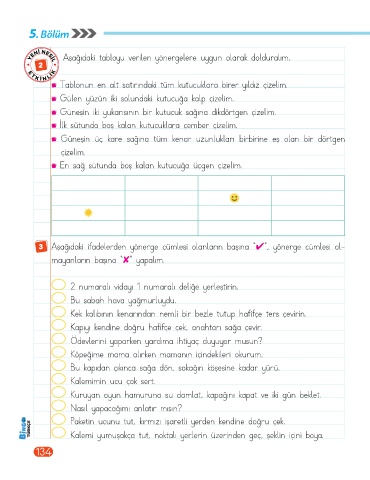 5. Bölüm
YENİ NESİL
2
ETKİNLİK
Aşağıdaki tabloyu verilen yönergelere uygun olarak dolduralım.
Tablonun en alt satırındaki tüm kutucuklara birer yıldız çizelim.
Gülen yüzün iki solundaki kutucuğa kalp çizelim.
Güneşin iki yukarısının bir kutucuk sağına dikdörtgen çizelim.
İlk sütunda boş kalan kutucuklara çember çizelim.
Güneşin üç kare sağına tüm kenar uzunlukları birbirine eş olan bir dörtgen
çizelim.
En sağ sütunda boş kalan kutucuğa üçgen çizelim.
3 Aşağıdaki ifadelerden yönerge cümlesi olanların başına "✔", yönerge cümlesi ol-
mayanların başına "✘" yapalım.
2 numaralı vidayı 1 numaralı deliğe yerleştirin.
Bu sabah hava yağmurluydu.
Kek kalıbının kenarından nemli bir bezle tutup hafifçe ters çevirin.
Kapıyı kendine doğru hafifçe çek, anahtarı sağa çevir.
Ödevlerini yaparken yardıma ihtiyaç duyuyor musun?
Köpeğime mama alırken mamanın içindekileri okurum.
Bu kapıdan çıkınca sağa dön, sokağın köşesine kadar yürü.
Kalemimin ucu çok sert.
Kuruyan oyun hamuruna su damlat, kapağını kapat ve iki gün beklet.
Nasıl yapacağımı anlatır mısın?
Paketin ucunu tut, kırmızı işaretli yerden kendine doğru çek.
Kalemi yumuşakça tut, noktalı yerlerin üzerinden geç, şeklin içini boya.
BinGO
TÜRKÇE
134